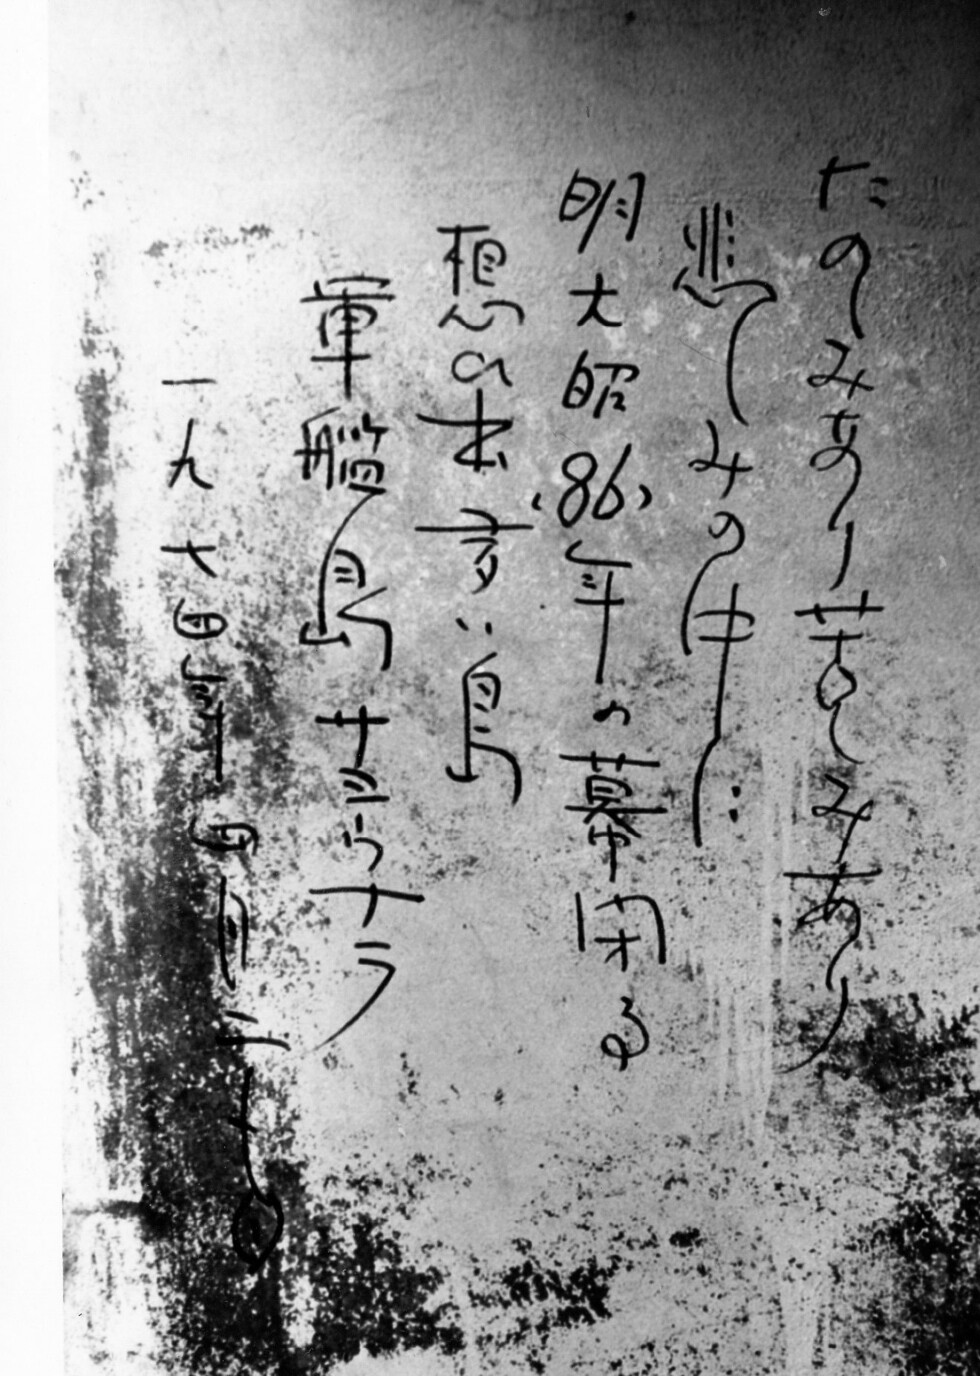 たのしみあり苦しみあり
悲しみの中に
明大昭(86)年の幕閉る
想 島
軍艦島サヨウナラ
一九七四年